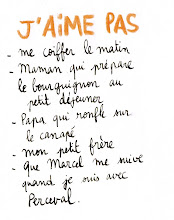 J'AiME PAS
- me coiffer le matin
- Maman qui prépare
le bourguignon au
petit déjeuner
- Papa qui ronfle sur
le canapé
- mon petit frère
- Que Marcel me suive
quand je suis avec
Perceval.